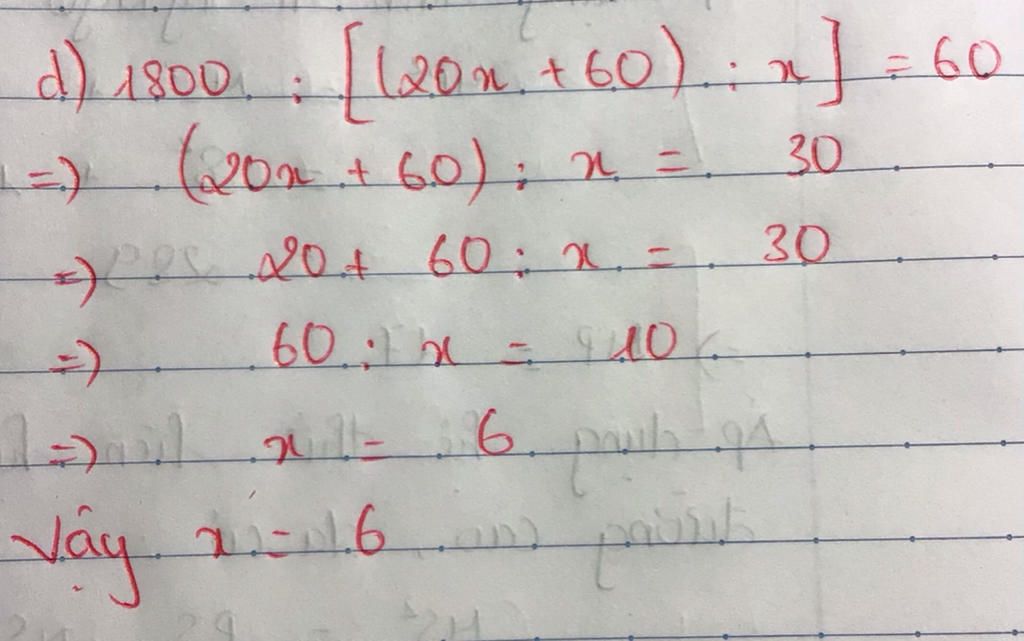 d) 1800 : [(20x + 60) : x] = 60
=) (20x + 60) : x = 30
=) 20 + 60 : x = 30
=) 60 : x = 10
=) x = 6
Vậy x = 6